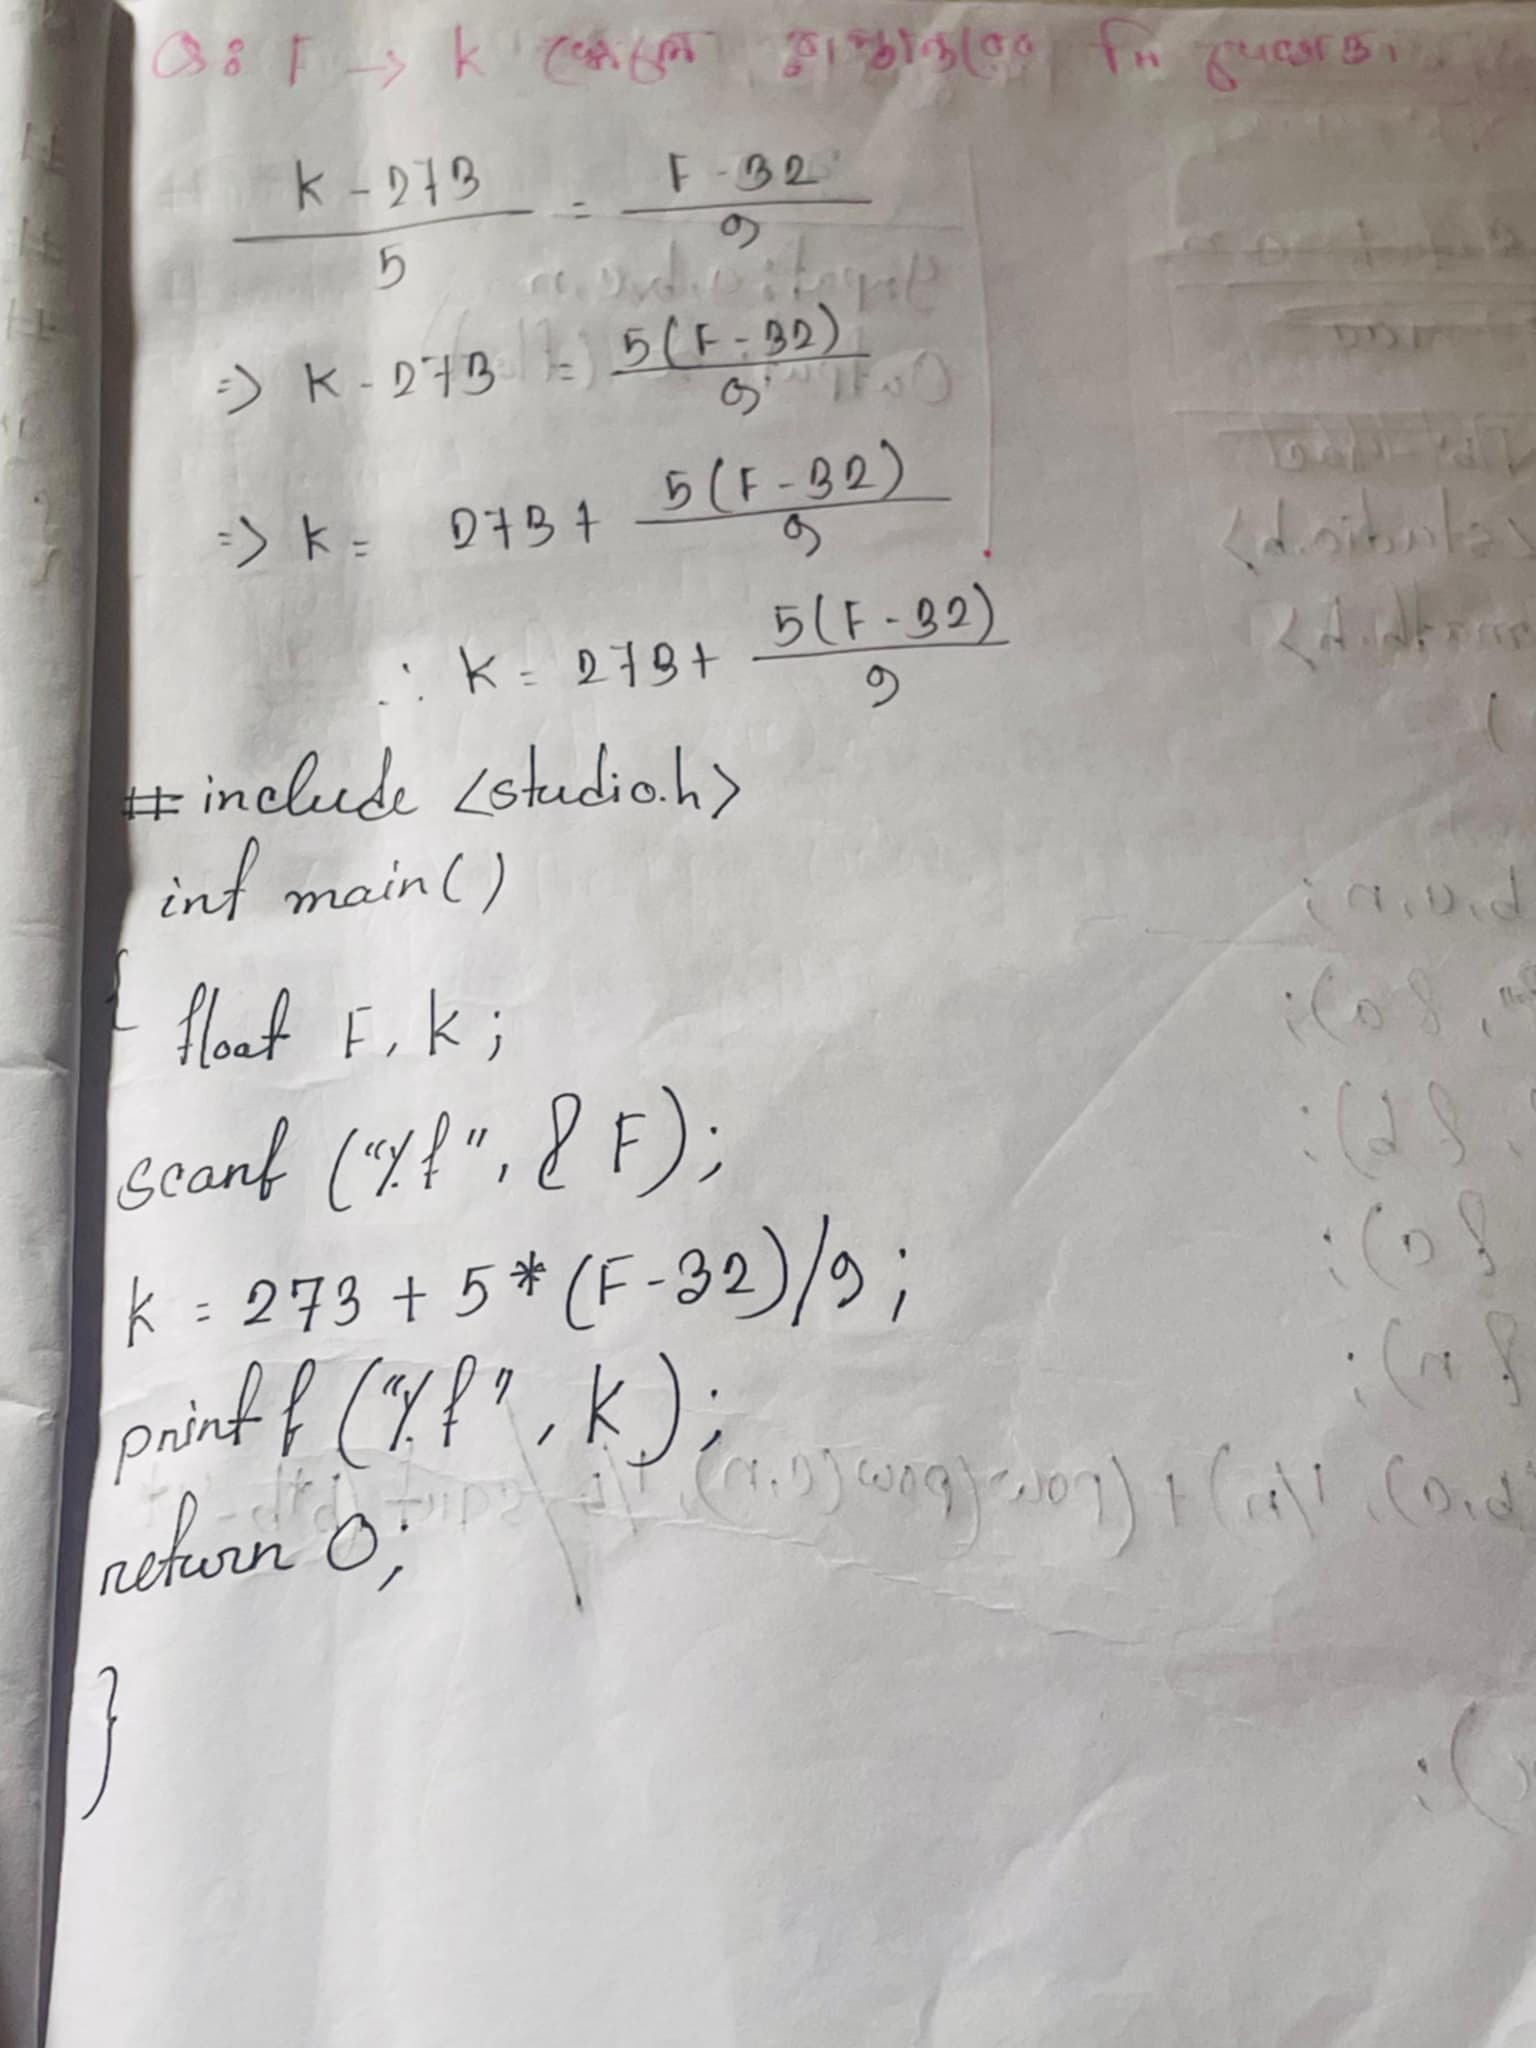 F → K
K - 273 / 5 = F - 32 / 9
=> K - 273 = 5(F - 32) / 9
=> K = 273 + 5(F - 32) / 9
∴ K = 273 + 5(F - 32) / 9
# include <studio.h>
int main()
{
float F, K;
scanf ("%f", & F);
K = 273 + 5 * (F - 32)/9;
printf ("%f", K);
return 0;
}